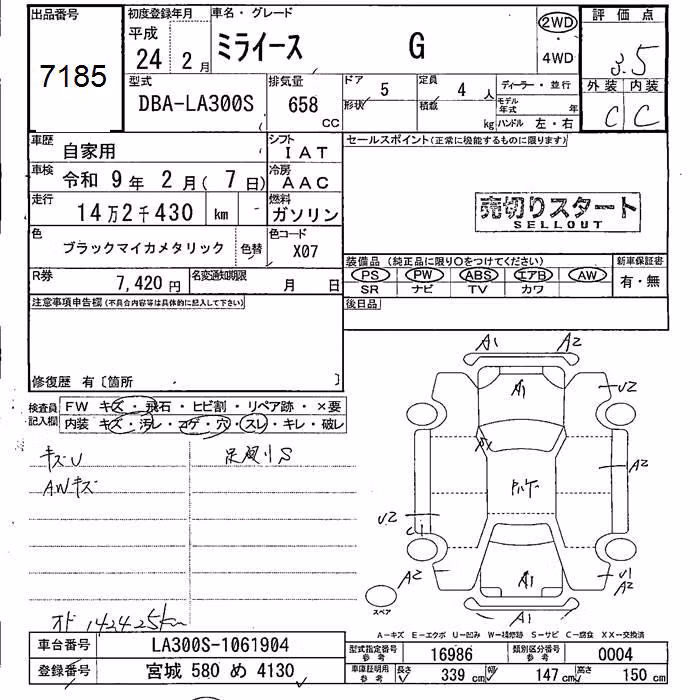 出品番号
7185
初度登録年月
平成
24 2月
車名・グレード
ミライース G
2WD
4WD
評価点
3.5
外装 内装
C C
型式
DBA-LA300S
排気量
658
cc
ドア
形状
5
定員
積載
4 人
kg
ディーラー・並行
モデル
年式 年
ハンドル 左・右
車歴
自家用
シフト
IAT
車検
令和 9年 2月( 7日)
冷房
AAC
走行
14万2千430 km
燃料
ガソリン
色
ブラックマイカメタリック
色替
色コード
X07
R券
7,420円
名変通知期限
月 日
セールスポイント(正常に機能するものに限ります)
売切りスタート
SELLOUT
装備品(純正品に限り○をつけてください)
PS PW ABS エアB AW
SR ナビ TV カワ
新車保証書
有・無
後日品
注意事項申告欄(不具合内容等は具体的に記入して下さい)
修復歴 有〔箇所 〕
検査員
記入欄
FW キズ・飛石・ヒビ割・リペア跡・×要
内装 キズ・汚レ・コゲ・穴・スレ・キレ・破レ
キズU
AWキズ
足廻りS
オド 142425km
A1 A2
A1
U2
A1
A2
U2
A2
A1
U1
A2
A1
スペア
A-キズ E-エクボ U-凹み W-補修跡 S-サビ C-腐食 XX-交換済
車台番号
LA300S-1061904
登録番号
宮城 580 め 4130
型式指定番号
参考
16986
類別区分番号
参考
0004
車庫証明用
参考
長さ 339 cm 幅 147 cm 高さ 150 cm